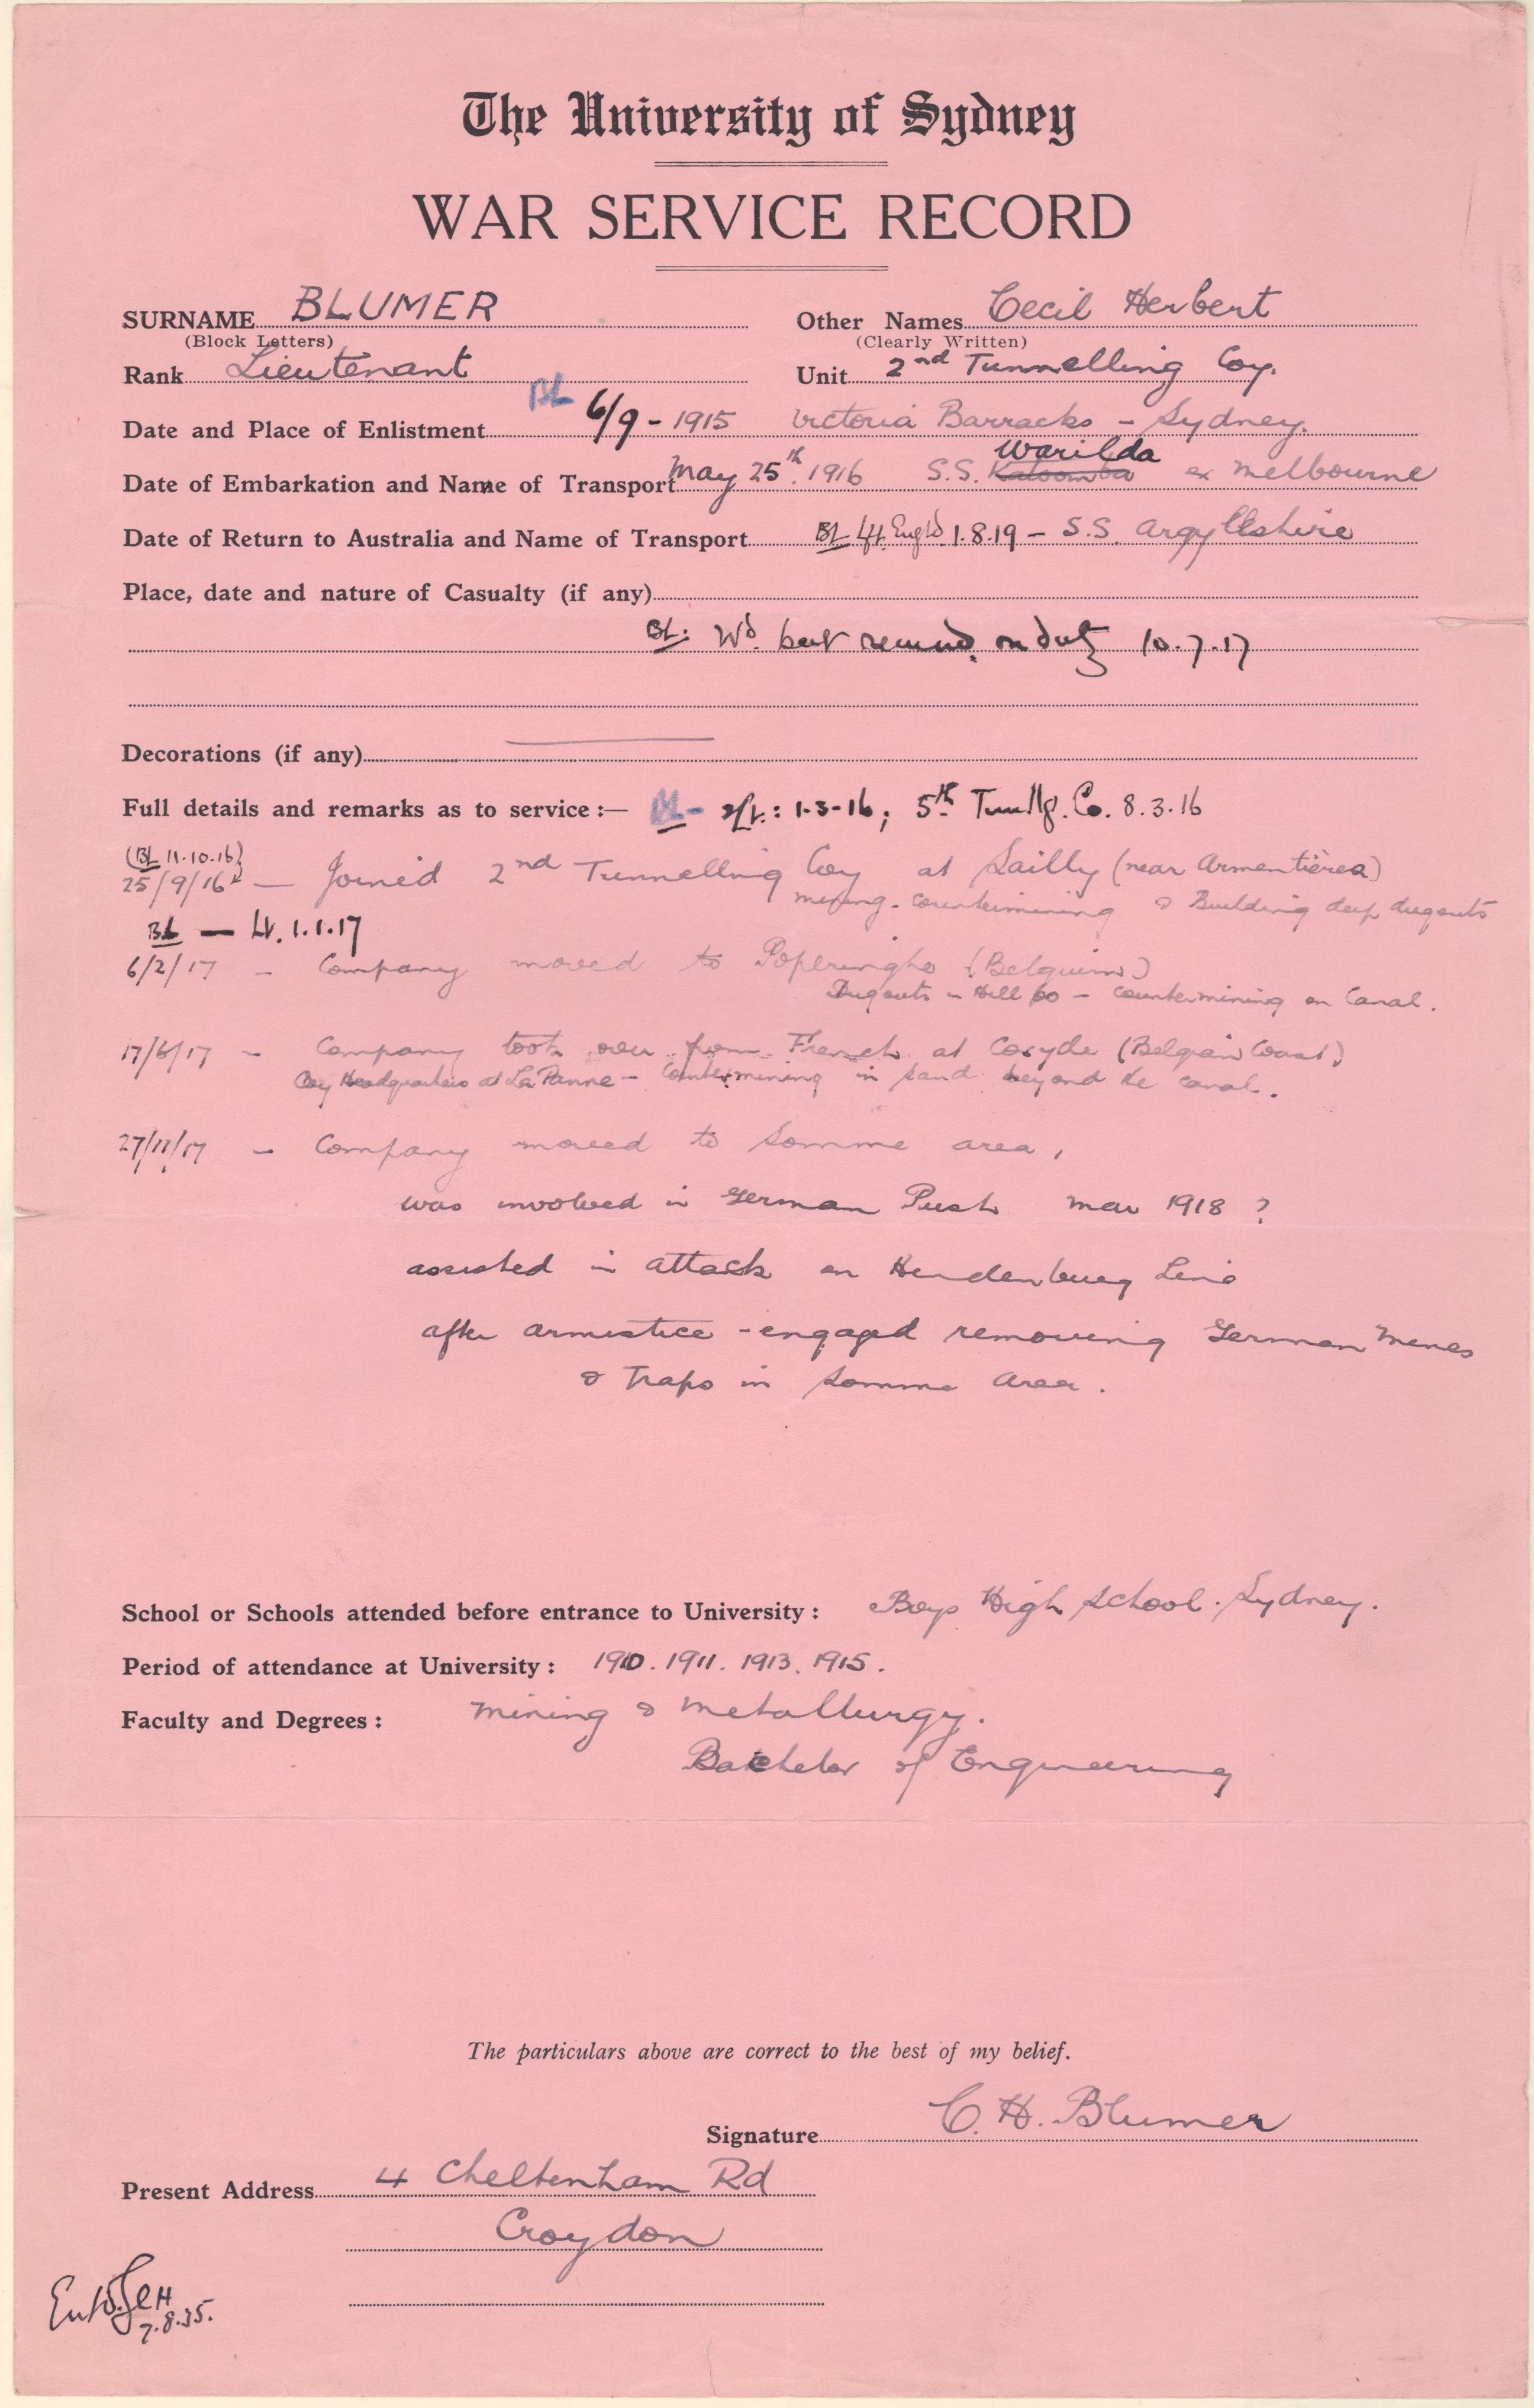 The University of Sydney
WAR SERVICE RECORD
SURNAME BLUMER Other Names Cecil Herbert
(Block Letters) (Clearly Written)
Rank Lieutenant Unit 2nd Tunnelling Coy.
Date and Place of Enlistment BL 6/9 - 1915 Victoria Barracks - Sydney.
Warilda
Date of Embarkation and Name of Transport May 25th. 1916 S.S. Katoomba ex Melbourne
Date of Return to Australia and Name of Transport BL Lft. Engld 1.8.19 - S.S. Argyllshire
Place, date and nature of Casualty (if any)
BL: Wd. but remnd. on duty 10.7.17
Decorations (if any)
Full details and remarks as to service:— BL - 2/Lt.: 1-3-16; 5th Tunllg. Co. 8.3.16
(BL 11.10.16)
25/9/16 — Joined 2nd Tunnelling Coy at Sailly (near Armentières)
mining - countermining & Building deep dugouts
BL — Lt. 1.1.17
6/2/17 - Company moved to Poperinghe (Belguim)
Dugouts in Hill 60 - countermining on Canal.
17/6/17 - Company took over from French at Coxyde (Belgian Coast)
Coy Headquarters at La Panne - Countermining in sand beyond the canal.
27/11/17 - Company moved to Somme area,
was involved in German Push Mar 1918 ?
assisted in attack on Hindenburg Line
after armistice - engaged removing German mines
& Traps in Somme Area.
School or Schools attended before entrance to University: Boys High School. Sydney.
Period of attendance at University: 1910. 1911. 1913. 1915.
Faculty and Degrees: Mining & Metallurgy.
Bachelor of Engineering
The particulars above are correct to the best of my belief.
Signature C. H. Blumer
Present Address 4 Cheltenham Rd
Croydon
7.8.35.